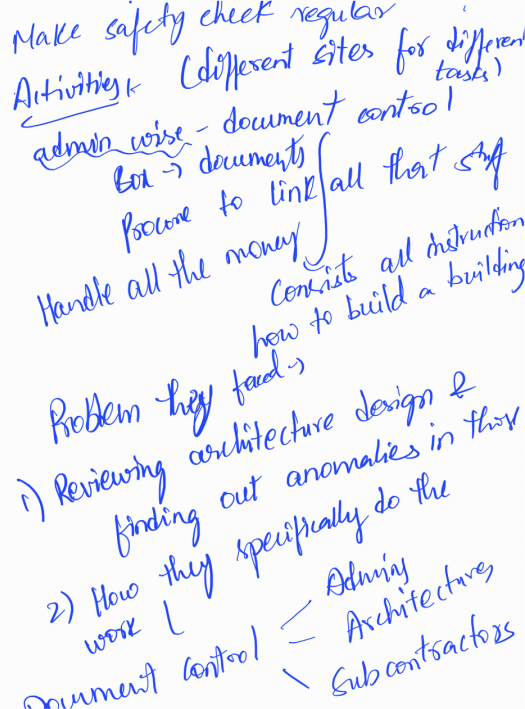 Make safety check regular
Activities (different sites for different
tasks)
admin wise - document control
Box → documents
Procore to link all that stuff
Handle all the money
Consists all instruction
how to build a building
Problem they faced →
1) Reviewing architecture design &
finding out anomalies in that
2) How they specifically do the
work
Document control
Admins
Architectures
Subcontractors